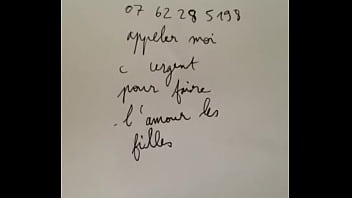 07 62 28 5198
appeler moi
c urgent
pour faire
l'amour les
filles